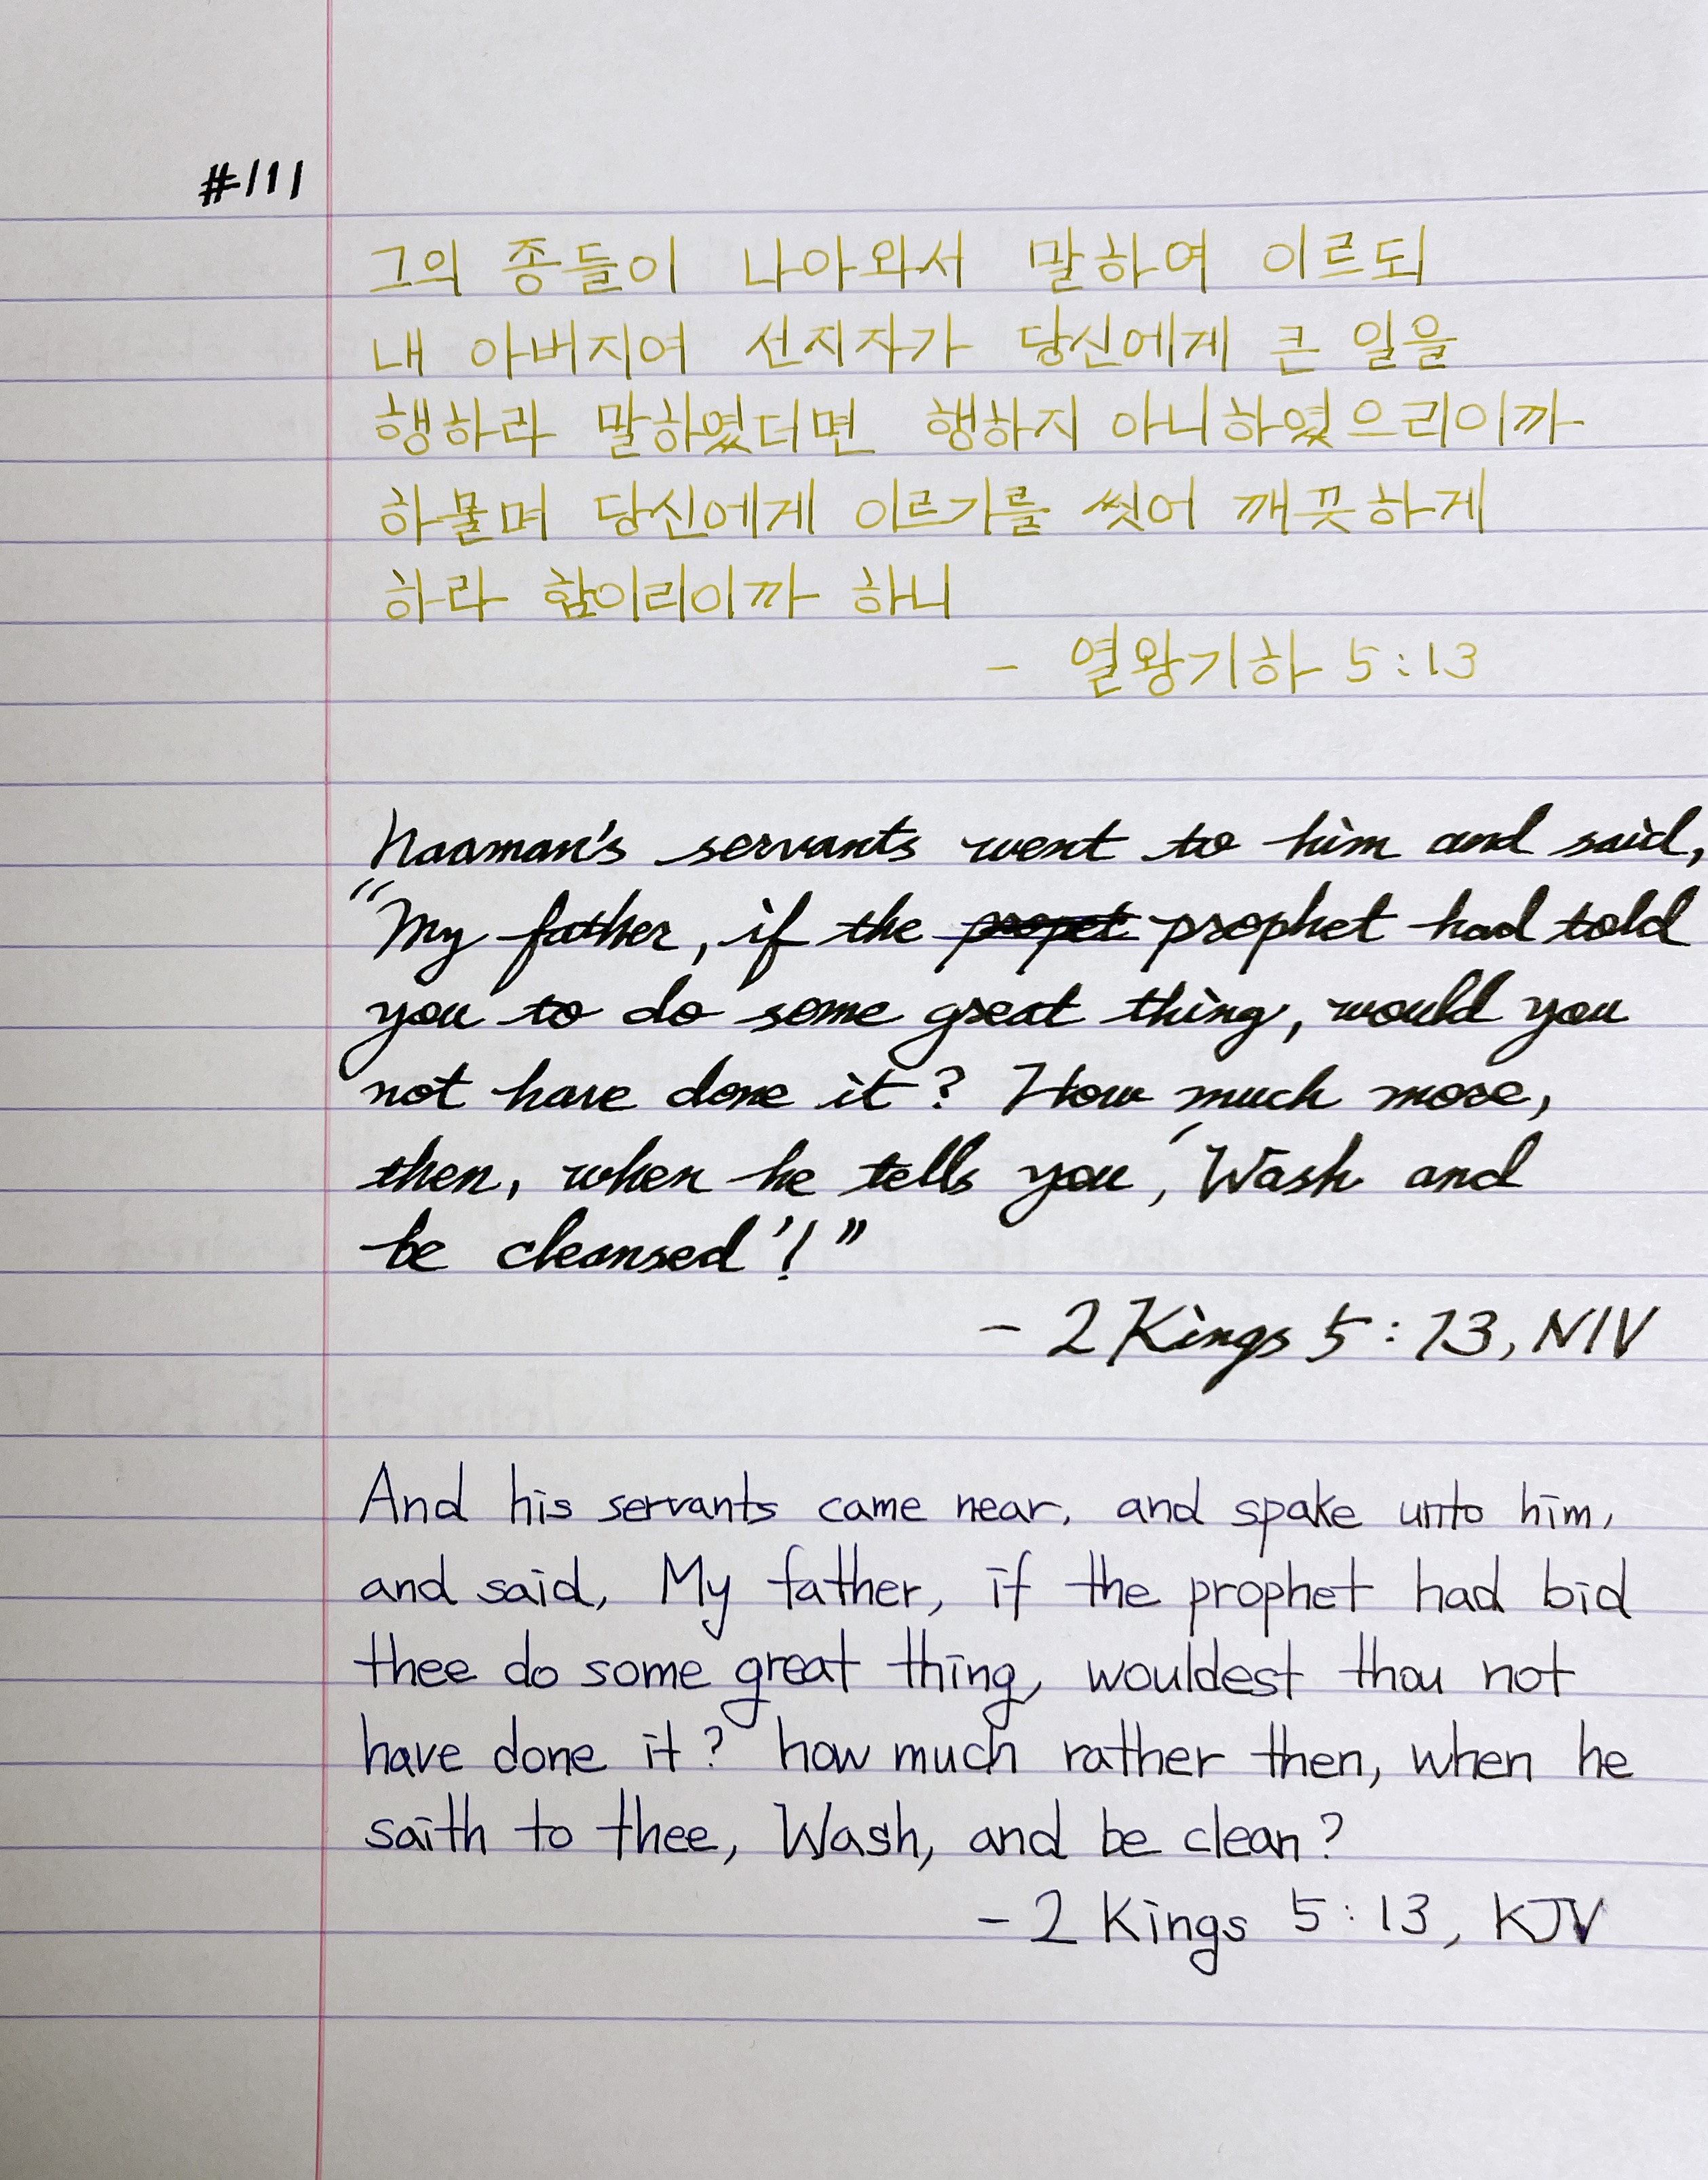 #111
그의 종들이 나아와서 말하여 이르되
내 아버지여 선지자가 당신에게 큰 일을
행하라 말하였더면 행하지 아니하였으리이까
하물며 당신에게 이르기를 씻어 깨끗하게
하라 함이리이까 하니
- 열왕기하 5:13
Naaman's servants went to him and said,
"My father, if the propet prophet had told
you to do some great thing, would you
not have done it? How much more,
then, when he tells you, 'Wash and
be cleansed'!"
- 2 Kings 5:13, NIV
And his servants came near, and spake unto him,
and said, My father, if the prophet had bid
thee do some great thing, wouldest thou not
have done it? how much rather then, when he
saith to thee, Wash, and be clean?
- 2 Kings 5:13, KJV